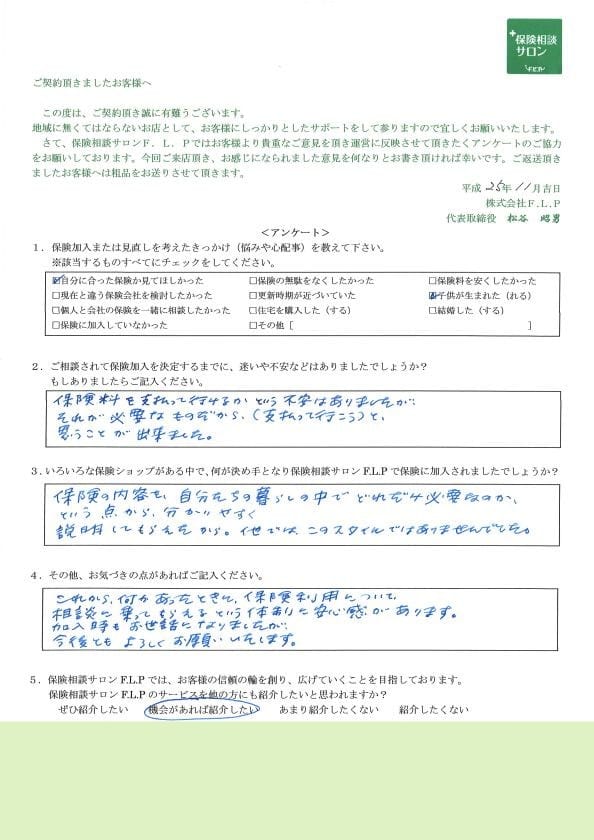 +保険相談
サロン
F.L.P
ご契約頂きましたお客様へ
この度は、ご契約頂き誠に有難うございます。
地域に無くてはならないお店として、お客様にしっかりとしたサポートをして参りますので宜しくお願いいたします。
さて、保険相談サロンF．L．Pではお客様より貴重なご意見を頂き運営に反映させて頂きたくアンケートのご協力
をお願いしております。今回ご来店頂き、お感じになられました意見を何なりとお書き頂ければ幸いです。ご返送頂き
ましたお客様へは粗品をお送りさせて頂きます。
平成 25年 11月吉日
株式会社F.L.P
代表取締役 松谷 昭男
＜アンケート＞
１．保険加入または見直しを考えたきっかけ（悩みや心配事）を教えて下さい。
※該当するものすべてにチェックをしてください。
☑自分に合った保険か見てほしかった □保険の無駄をなくしたかった □保険料を安くしたかった
□現在と違う保険会社を検討したかった □更新時期が近づいていた ☑子供が生まれた（れる）
□個人と会社の保険を一緒に相談したかった □住宅を購入した（する） □結婚した（する）
□保険に加入していなかった □その他［ ］
２．ご相談されて保険加入を決定するまでに、迷いや不安などはありましたでしょうか？
もしありましたらご記入ください。
保険料を支払って行けるかという不安はありましたが、
それが必要なものだから、（支払って行こう）と、
思うことが出来ました。
３.いろいろな保険ショップがある中で、何が決め手となり保険相談サロンF.L.Pで保険に加入されましたでしょうか？
保険の内容を、自分たちの暮らしの中でどれだけ必要なのか、
という点から、分かりやすく
説明してもらえたから。他では、このスタイルではありませんでした。
４．その他、お気づきの点があればご記入ください。
これから、何かあったときに、保険利用について、
相談に乗ってもらえるという体制に安心感があります。
加入時もお世話になりましたが、
今後ともよろしくお願いいたします。
５．保険相談サロンF.L.Pでは、お客様の信頼の輪を創り、広げていくことを目指しております。
保険相談サロンF.L.Pのサービスを他の方にも紹介したいと思われますか？
ぜひ紹介したい 機会があれば紹介したい あまり紹介したくない 紹介したくない